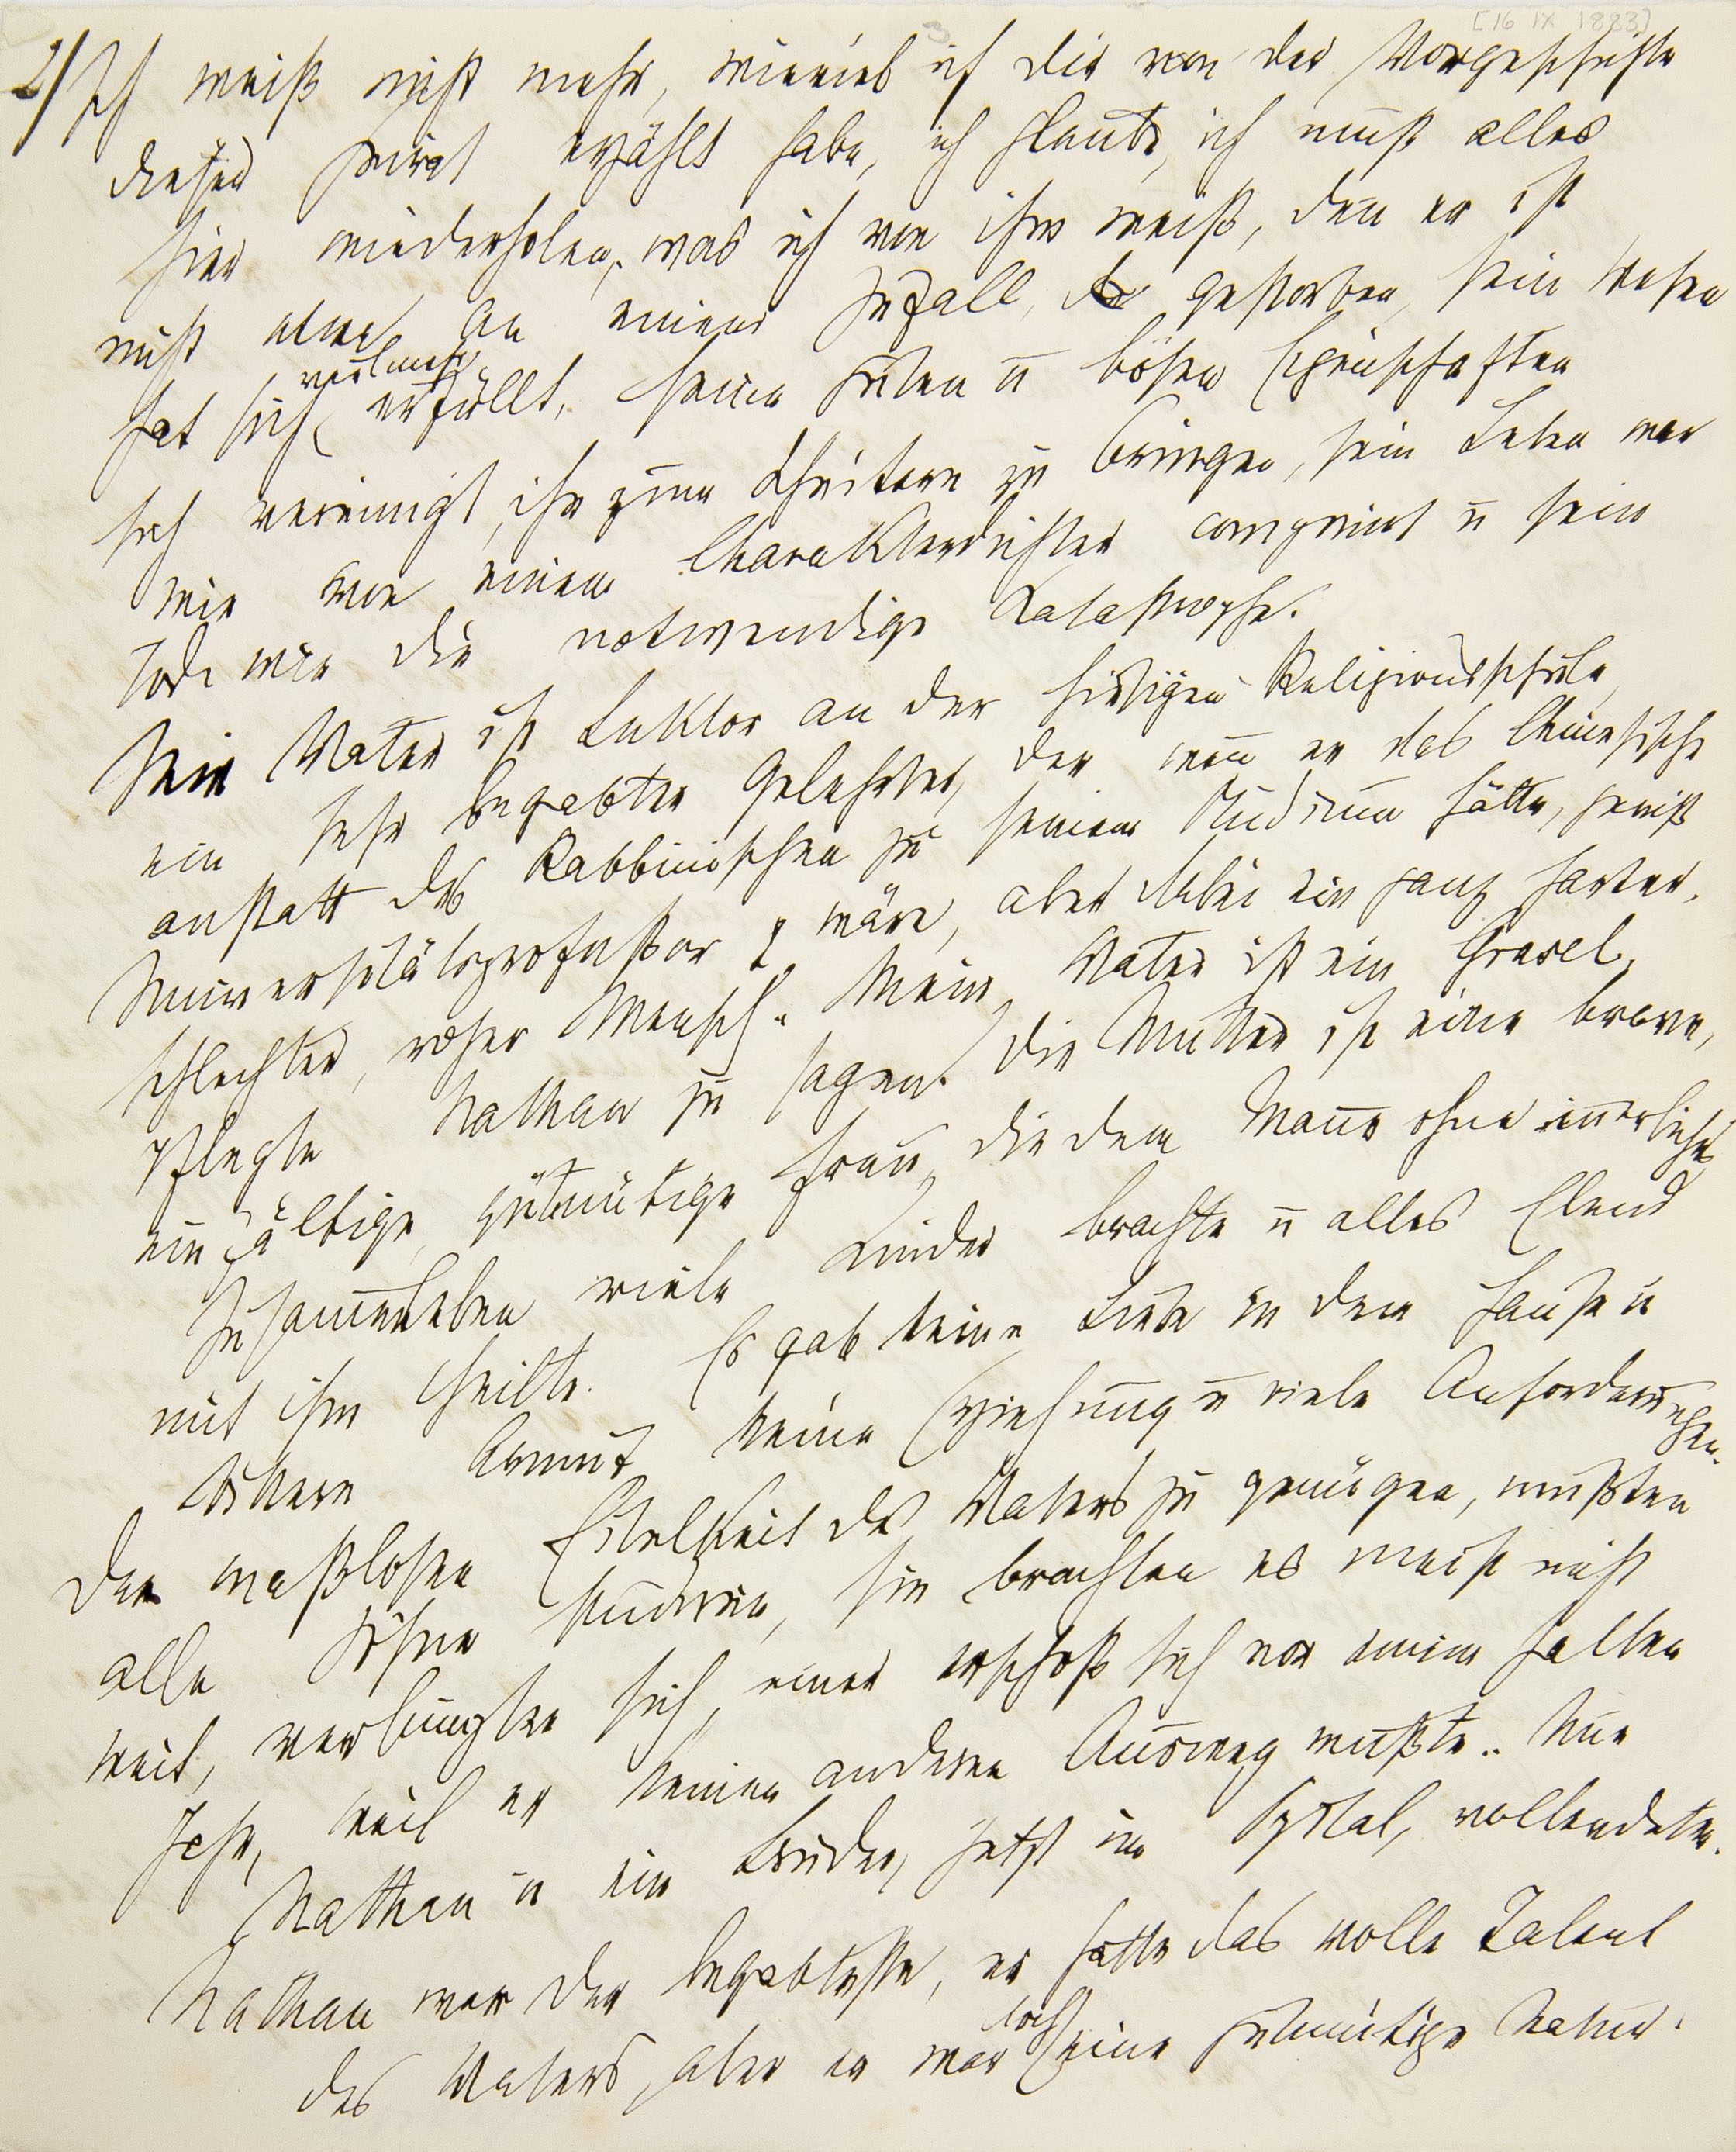 [16 IX 1883]
2/ Ich weiß nicht mehr, wieviel ich dir von der Vorgeschichte
dieses erzählt habe, ich glaube, ich muß alles
hier wiederholen, was ich von ihm weiß, deñ er ist
nicht etwa an einem Zufall gestorben, sein Wesen
hat sich vielmehr erfüllt, seine guten u bösen Eigenschaften
sich vereinigt, ihn zum Scheitern zu bringen, sein Leben war
wie von einem Charakterdichter componirt u sein
Tod wie die notwendige Katastrophe.
Sein Vater ist Lektor an der hiesigen Religionsschule,
ein sehr begabter Gelehrter, der weñ er das Chinesische
anstatt des Rabbinischen zu seinem Studium hätte, gewiß
Universitätsprofessor wäre, aber dabei ein ganz harter,
schlechter, roher Mensch. Mein Vater ist ein Grasel,
pflegte Nathan zu sagen. Die Mutter ist eine brave,
einfältige, gutmütige Frau, die dem Mañe ohne iñerliches
Zusam̄enleben viele Kinder brachte u alles Elend
mit ihm theilte. Es gab keine Liebe in dem Hause u
bittere Armut keine Erziehung u viele Anforderungen.
Der maßlosen Eitelkeit des Vaters zu genügen, mußten
alle Söhne studiren, sie brachten es meist nicht
weit, verbungten sich, einer erschoß sich vor einem halben
Jahr, weil er keinen anderen Ausweg wußte. Nur
Nathan u ein Bruder, jetzt im Spital, vollendeten.
Nathan war der begabteste, er hatte das volle Talent
des Vaters, aber er war doch eine gutmütige Natur.